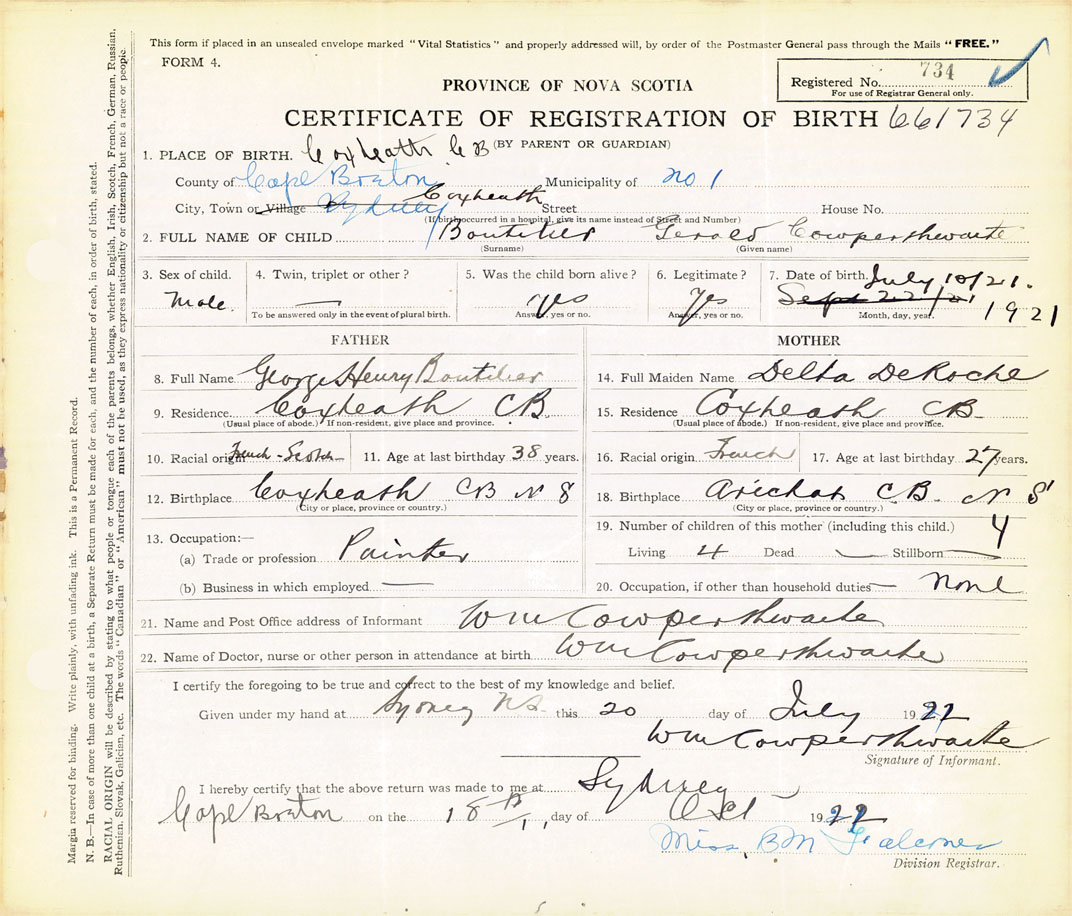 This form if placed in an unsealed envelope marked "Vital Statistics" and properly addressed will, by order of the Postmaster General pass through the Mails "FREE."
FORM 4.
Registered No. 734
For use of Registrar General only.
PROVINCE OF NOVA SCOTIA
CERTIFICATE OF REGISTRATION OF BIRTH 661734
(BY PARENT OR GUARDIAN)
1. PLACE OF BIRTH. Coxheath C B
County of Cape Breton Municipality of no 1
City, Town or Village Sydney Coxheath Street House No.
(If birth occurred in a hospital, give its name instead of Street and Number)
2. FULL NAME OF CHILD Boutilier Gerald Cowperthwaite
(Surname) (Given name)
3. Sex of child. Male.
4. Twin, triplet or other? —
To be answered only in the event of plural birth.
5. Was the child born alive? yes
Answer, yes or no.
6. Legitimate? Yes
Answer, yes or no.
7. Date of birth. July 10/21.
Sept 22/21 1921
Month, day, year.
FATHER
8. Full Name George Henry Boutilier
9. Residence Coxheath CB
(Usual place of abode.) If non-resident, give place and province.
10. Racial origin French-Scotch 11. Age at last birthday 38 years.
12. Birthplace Coxheath CB N S
(City or place, province or country.)
13. Occupation:—
(a) Trade or profession Painter
(b) Business in which employed —
MOTHER
14. Full Maiden Name Delta DeRoche
15. Residence Coxheath CB
(Usual place of abode.) If non-resident, give place and province.
16. Racial origin French 17. Age at last birthday 27 years.
18. Birthplace Arichat C B. N S
(City or place, province or country.)
19. Number of children of this mother (including this child.) 4
Living 4 Dead — Stillborn —
20. Occupation, if other than household duties None
21. Name and Post Office address of Informant Wm Cowperthwaite
22. Name of Doctor, nurse or other person in attendance at birth Wm Cowperthwaite
I certify the foregoing to be true and correct to the best of my knowledge and belief.
Given under my hand at Sydney N.S. this 20 day of July 19
Wm Cowperthwaite
Signature of Informant.
I hereby certify that the above return was made to me at Sydney
Cape Breton on the 18th day of Oct 19
Miss. BM Falconer
Division Registrar.
Margin reserved for binding. Write plainly, with unfading ink. This is a Permanent Record.
N. B.—In case of more than one child at a birth, a Separate Return must be made for each, and the number of each, in order of birth, stated.
RACIAL ORIGIN will be described by stating to what people or tongue each of the parents belongs, whether English, Irish, Scotch, French, German, Russian,
Ruthenian, Slovak, Galician, etc. The words "Canadian" or "American" must not be used, as they express nationality or citizenship but not a race or people.